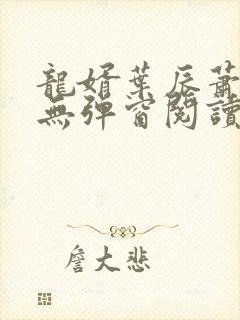 龍婿葉辰蕭
無彈窗閱讀
詹大悲